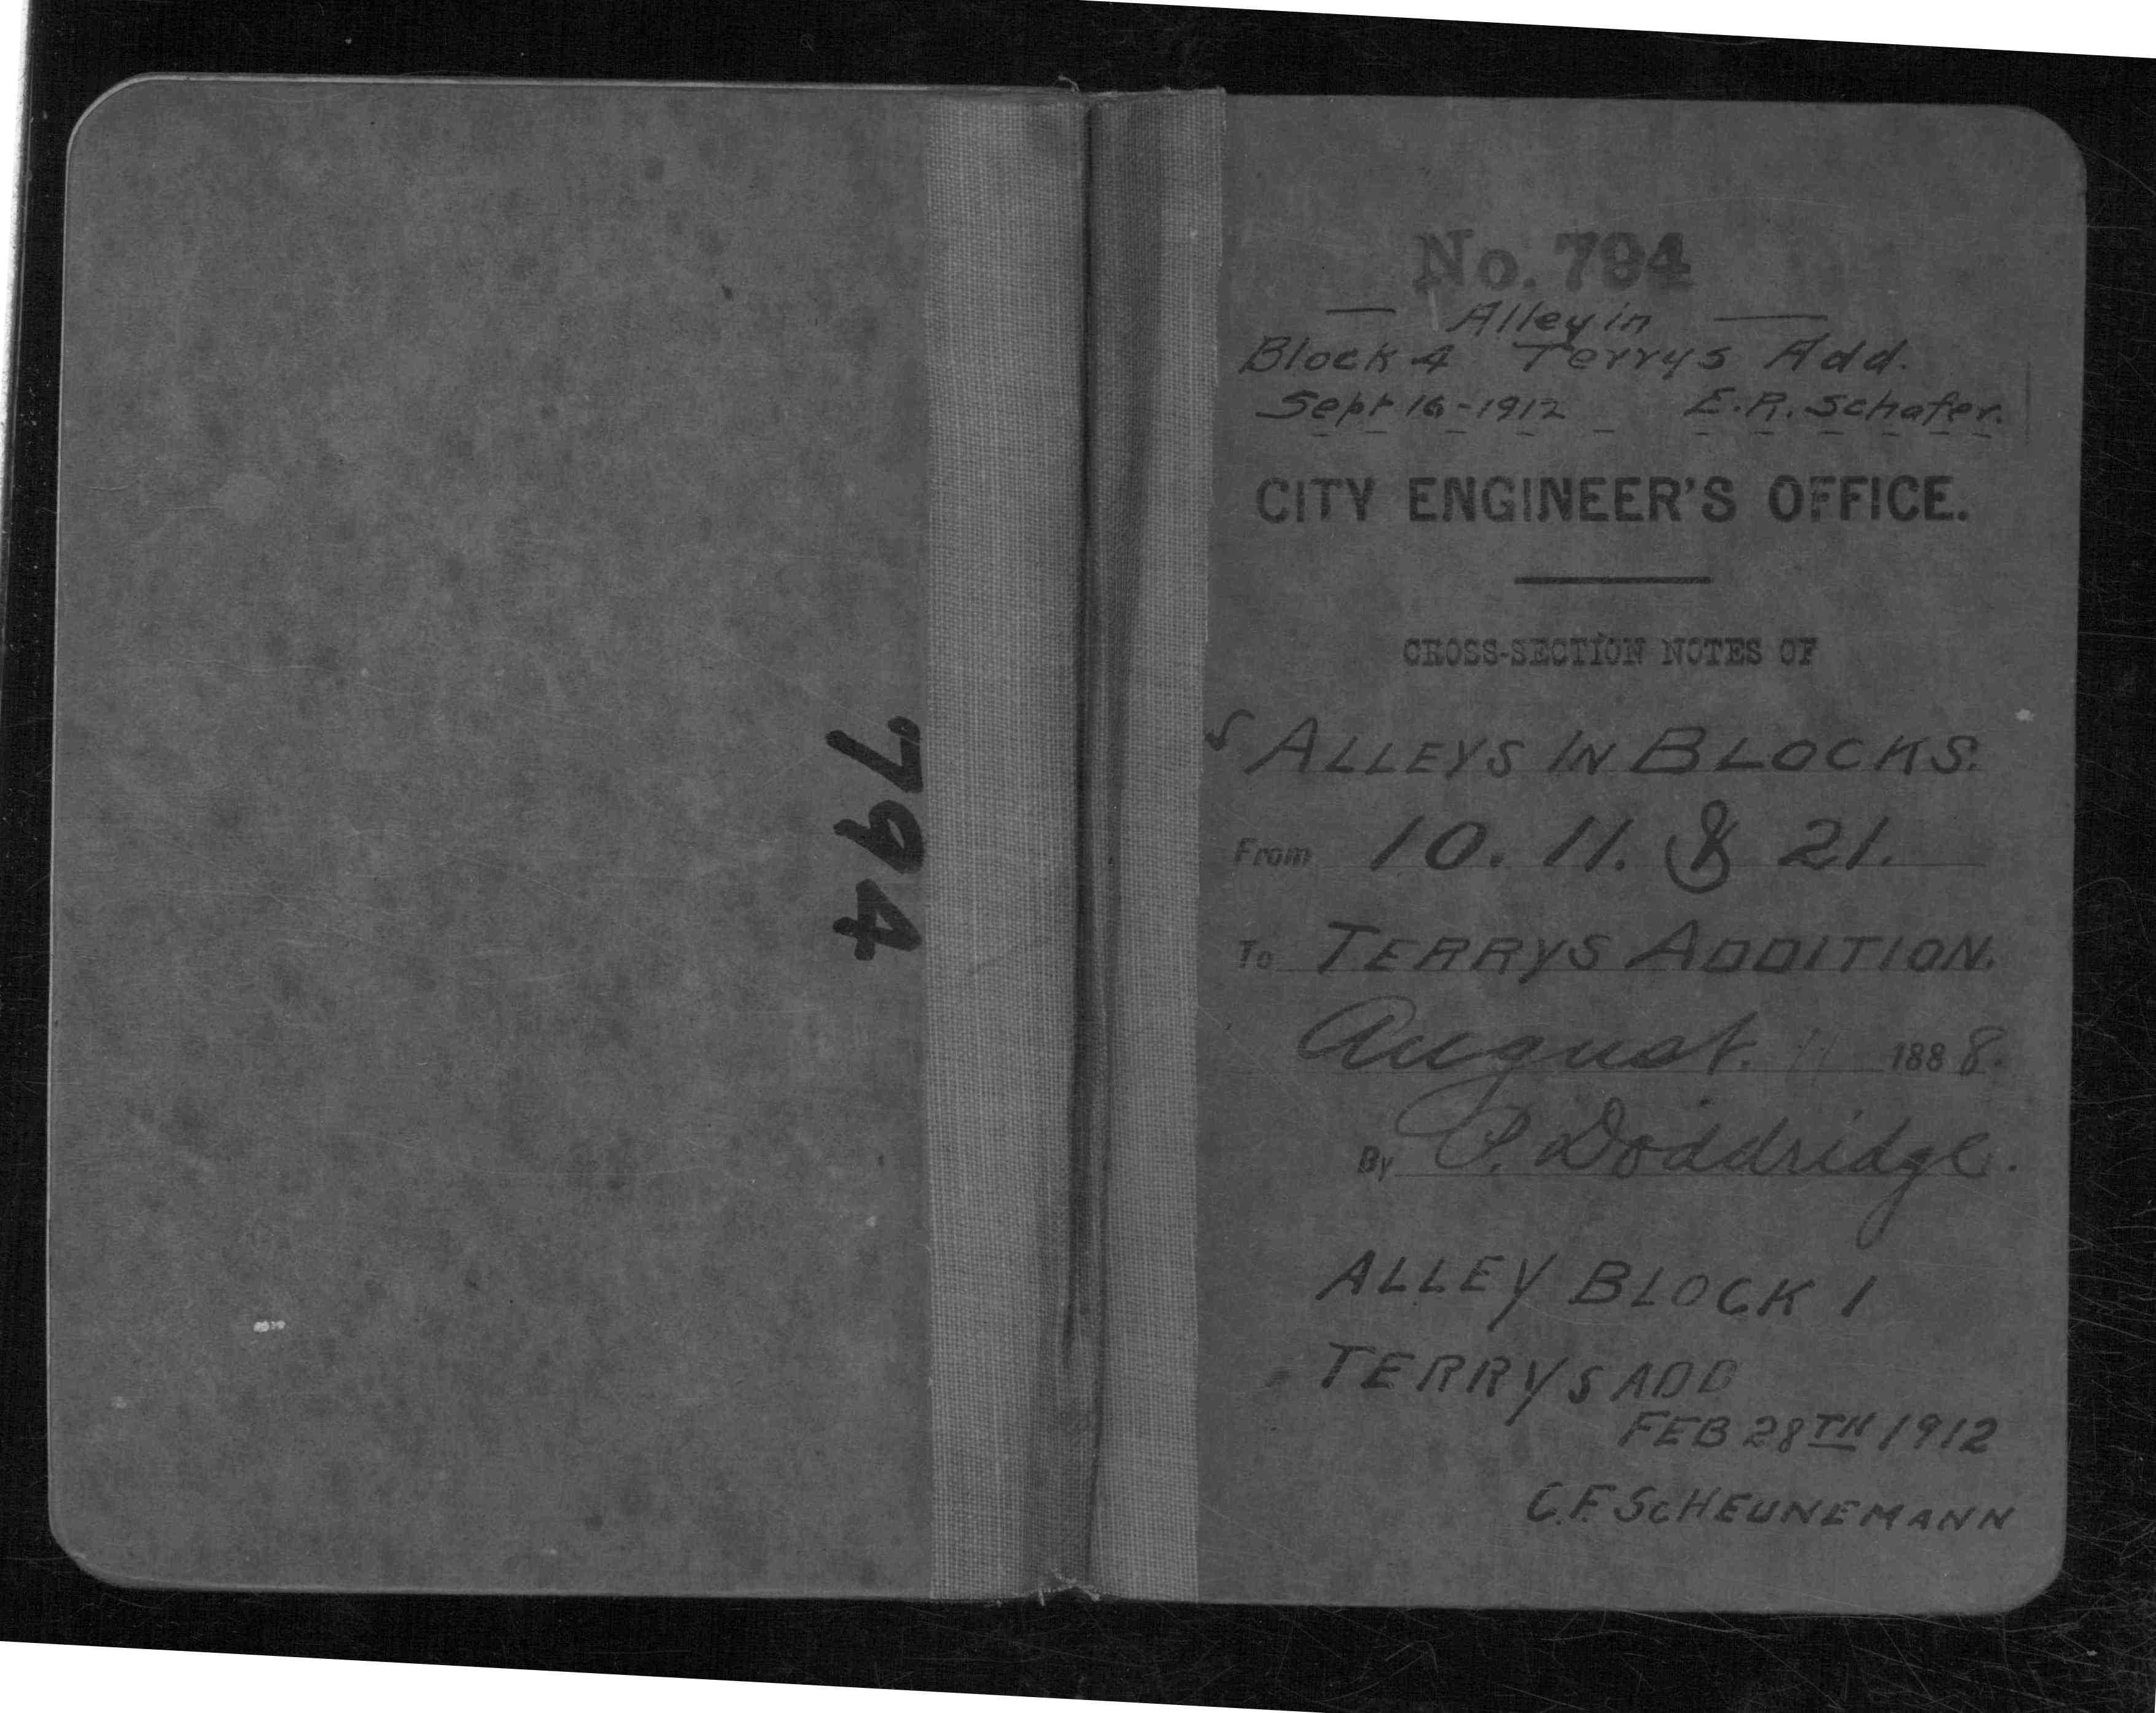 794
No. 794
Alley in
Block 4 Terrys Add.
Sept 16-1912 E.R. Schafer.
CITY ENGINEER'S OFFICE.
CROSS-SECTION NOTES OF
ALLEYS IN BLOCKS.
From 10. 11. & 21.
To TERRYS ADDITION.
August. 11 1888.
By P. Doddridge.
ALLEY BLOCK 1
TERRYS ADD
FEB 28TH 1912
C.F. SCHEUNEMANN